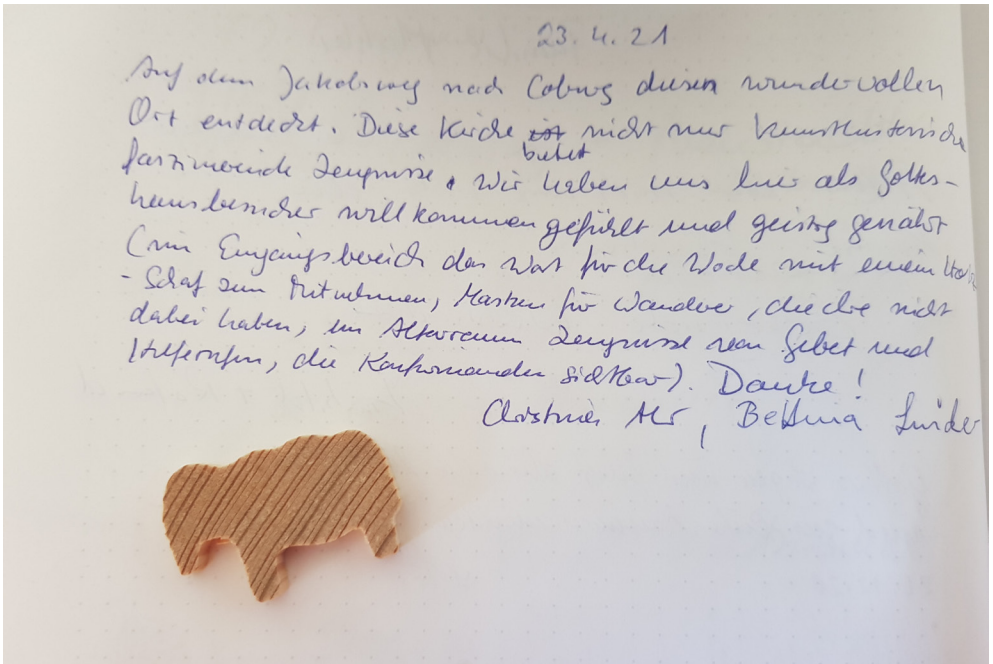 23.4.21
Auf dem Jakobsweg nach Coburg diesen wundervollen
Ort entdeckt. Diese Kirche ist nicht nur kunsthistorische
bietet
faszinierende Zeugnisse. Wir haben uns hier als Gottes-
hausbesucher willkommen gefühlt und geistig genährt
(im Eingangsbereich das Wort für die Woche mit einem Holz
-Schaf zum Mitnehmen, Masken für Wanderer, die die nicht
dabei haben, im Altarraum Zeugnisse von Gebet und
Hilferufen, die Konfirmanden sichtbar). Danke!
Bettina